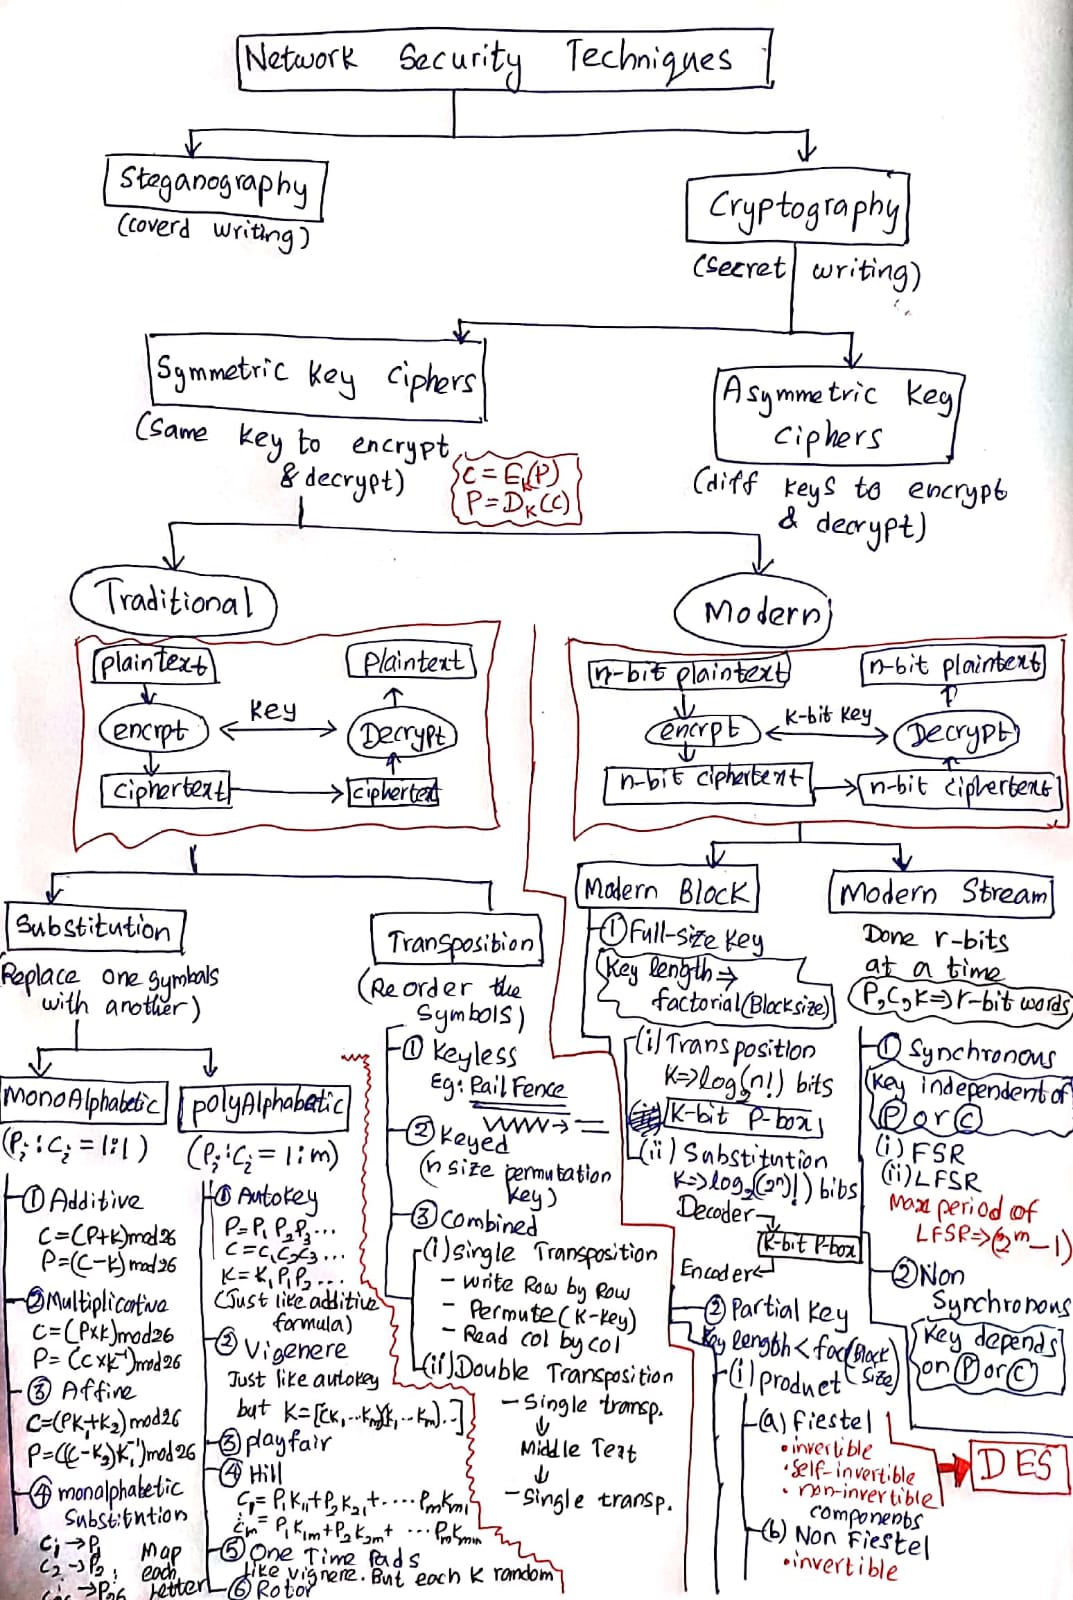 Network Security Techniques
Steganography
(coverd writing)
Cryptography
(secret writing)
Symmetric Key Ciphers
(same key to encrypt
& decrypt)
C = E_K(P)
P = D_K(C)
Asymmetric Key
Ciphers
(diff keys to encrypt
& decrypt)
Traditional
plaintext
encrpt
ciphertext
Key
Plaintext
Decrypt
ciphertext
Modern
n-bit plaintext
encrpt
n-bit ciphertext
K-bit Key
n-bit plaintext
Decrypt
n-bit ciphertext
Substitution
(Replace one symbols
with another)
MonoAlphabetic
(Pi : Ci = 1:1)
① Additive
C=(P+K)mod26
P=(C-K)mod26
② Multiplicative
C=(P×K)mod26
P=(C×K⁻¹)mod26
③ Affine
C=(PK₁+K₂)mod26
P=((C-K₂)K₁⁻¹)mod26
④ monalphabetic
Substitution
C₁→P₁
C₂→P₂
→P₂₆
Map
each
letter
polyAlphabetic
(Pi : Ci = 1:m)
① Autokey
P=P₁P₂P₃...
C=C₁C₂C₃...
K=K₁P₁P₂...
(Just like additive
formula)
② Vigenere
Just like autokey
but K=[(K₁...Km)(K₁...Km)..]
③ playfair
④ Hill
C₁=P₁K₁₁+P₂K₂₁+....PmKm1
Cm=P₁K1m+P₂K2m+ ...PmKmm
⑤ One Time Pads
like vignere. But each K random
⑥ Rotor
Transposition
(Reorder the
Symbols)
① Keyless
Eg: Rail Fence
② Keyed
(n size permutation
key)
③ Combined
(i) Single Transposition
- Write Row by Row
- Permute (K-key)
- Read col by col
(ii) Double Transposition
- Single transp.
Middle Text
- Single transp.
Modern Block
① Full-size Key
Key length ⇒
factorial(Blocksize)
(i) Transposition
K⇒log₂(n!) bits
K-bit P-box
(ii) Substitution
K⇒log₂((2ⁿ)!) bibs
Decoder
K-bit P-box
Encoder
② Partial Key
Key length < fac(Block
Size)
(i) product
(a) fiestel
• invertible
• self-invertible
• non-invertible
components
(b) Non Fiestel
• invertible
DES
Modern Stream
Done r-bits
at a time
P,C,K⇒r-bit words
① Synchronous
Key independent of
P or C
(i) FSR
(ii) LFSR
Max period of
LFSR⇒(2ᵐ-1)
② Non
Synchronous
Key depends
on P or C